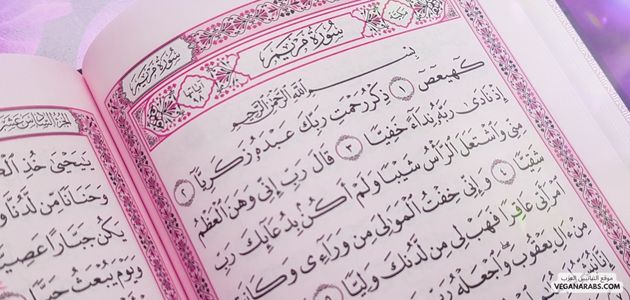 سُورَةُ مَرْيَمَ
سُورَةُ مَرْيَمَ
الجزء السادس عشر
بِسْمِ ٱللَّهِ ٱلرَّحْمَٰنِ ٱلرَّحِيمِ
كٓهيعٓصٓ ١ ذِكْرُ رَحْمَتِ رَبِّكَ عَبْدَهُۥ زَكَرِيَّآ ٢
إِذْ نَادَىٰ رَبَّهُۥ نِدَآءً خَفِيًّا ٣ قَالَ رَبِّ إِنِّى وَهَنَ ٱلْعَظْمُ
مِنِّى وَٱشْتَعَلَ ٱلرَّأْسُ شَيْبًا وَلَمْ أَكُنۢ بِدُعَآئِكَ رَبِّ
شَقِيًّا ٤ وَإِنِّى خِفْتُ ٱلْمَوَٰلِىَ مِن وَرَآءِى وَكَانَ
ٱمْرَأَتِى عَاقِرًا فَهَبْ لِى مِن لَّدُنكَ وَلِيًّا
مِنْ ءَالِ يَعْقُوبَ وَٱجْعَلْهُ رَبِّ
يَٰيَحْيَىٰ خُذِ
وَحَنَانًا مِّن لَّدُنَّا
يَكُن جَبَّارًا عَصِيًّا
وَيَوْمَ يُبْعَثُ حَيًّا
موقع النباتيين العرب
VEGANARABS.COM